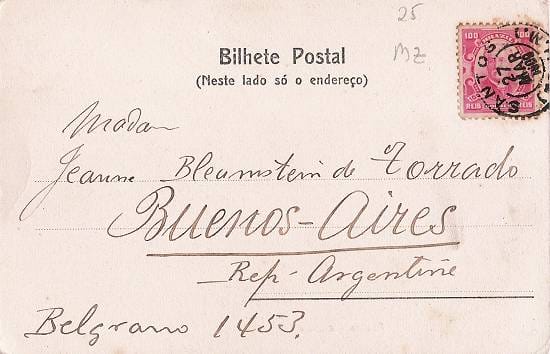 25
MZ
Bilhete Postal
(Neste lado só o endereço)
100 BRAZIL 100
SANTOS
27
MAR
REIS REIS
Madam
Jeanne Bleumstein de Torrado
Buenos-Aires
Rep- Argentine
Belgrano 1453.